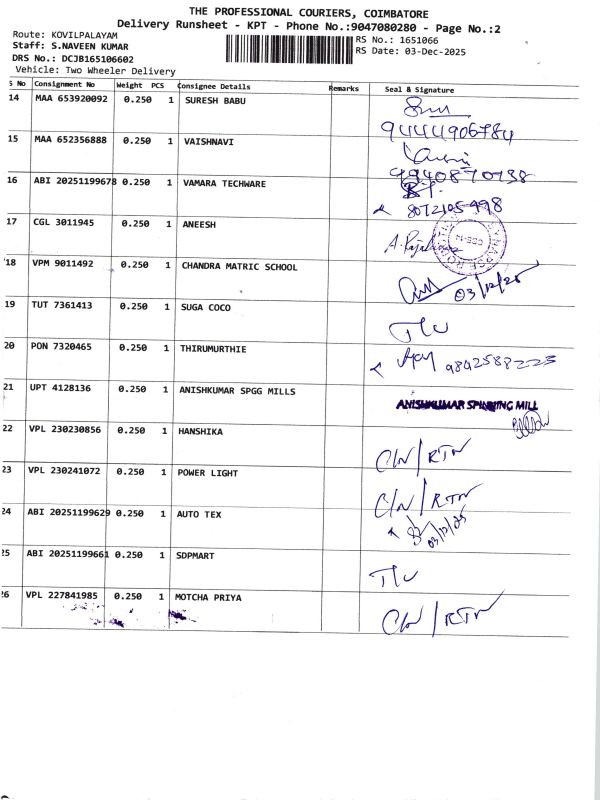 THE PROFESSIONAL COURIERS, COIMBATORE
Delivery Runsheet - KPT - Phone No.:9047080280 - Page No.:2
Route: KOVILPALAYAM
Staff: S.NAVEEN KUMAR
DRS No.: DCJB165106602
Vehicle: Two Wheeler Delivery
RS No.: 1651066
RS Date: 03-Dec-2025
S No Consignment No Weight PCS Consignee Details Remarks Seal & Signature
14 MAA 653920092 0.250 1 SURESH BABU
9444906784
15 MAA 652356888 0.250 1 VAISHNAVI
9940870738
16 ABI 20251199678 0.250 1 VAMARA TECHWARE
8072105498
17 CGL 3011945 0.250 1 ANEESH
18 VPM 9011492 0.250 1 CHANDRA MATRIC SCHOOL
03/12/25
19 TUT 7361413 0.250 1 SUGA COCO T/C
20 PON 7320465 0.250 1 THIRUMURTHIE 9842588223
21 UPT 4128136 0.250 1 ANISHKUMAR SPGG MILLS ANISHKUMAR SPINNING MILL
22 VPL 230230856 0.250 1 HANSHIKA C/N/RTN
23 VPL 230241072 0.250 1 POWER LIGHT C/N/RTN
24 ABI 20251199629 0.250 1 AUTO TEX 03/12/25
25 ABI 20251199661 0.250 1 SDPMART T/C
26 VPL 227841985 0.250 1 MOTCHA PRIYA C/N/RTN